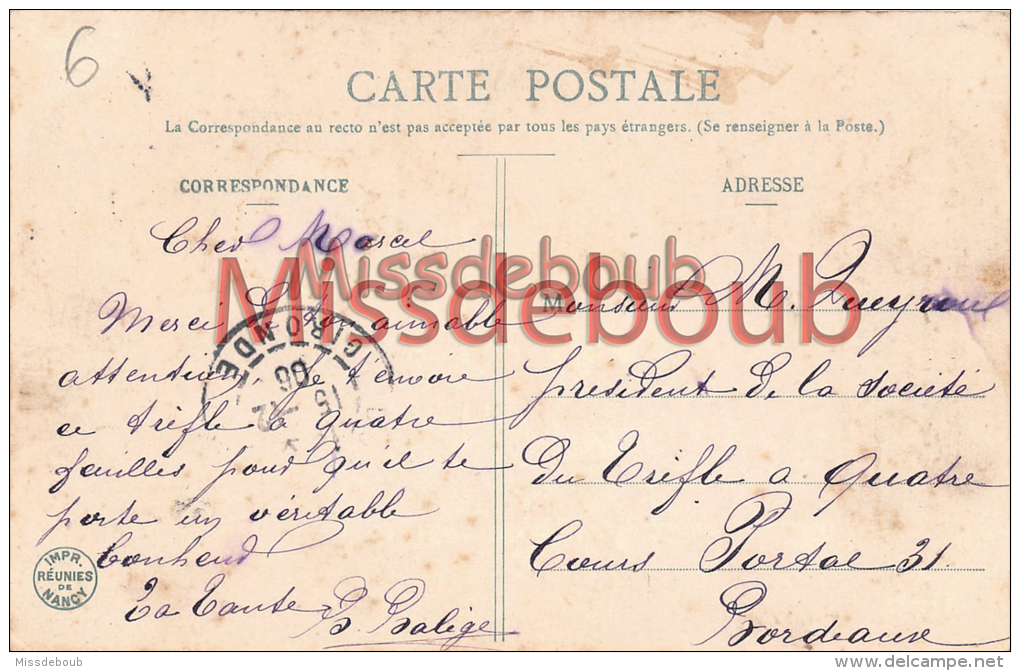 6
CARTE POSTALE
La Correspondance au recto n'est pas acceptée par tous les pays étrangers. (Se renseigner à la Poste.)
CORRESPONDANCE
Cher Marcel
Merci de ton aimable
attention. Je t'envoie
ce trèfle à quatre
feuilles pour qu'il te
porte un véritable
bonheur
Ta Tante
B. Balige
ADRESSE
Monsieur M. Queyreul
président de la Société
du Trèfle a Quatre
Cours Portal 31
Bordeaux
GIRONDE
06
IMPR.
RÉUNIES
DE
NANCY
Missdeboub
Missdeboub
Missdeboub
www.delcampe.net